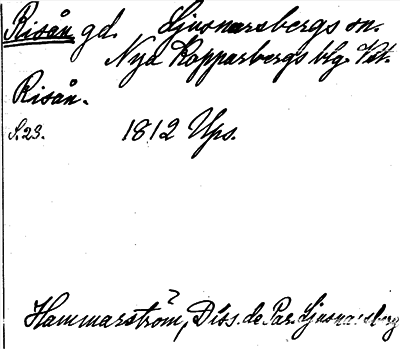 Risån gd. Ljusnarsbergs sn.
Nya Kopparbergs blg. Vstm.
Risån.
S. 23. 1812 Ups.
Hammarström, Diss. de Par. Ljusnarsberg